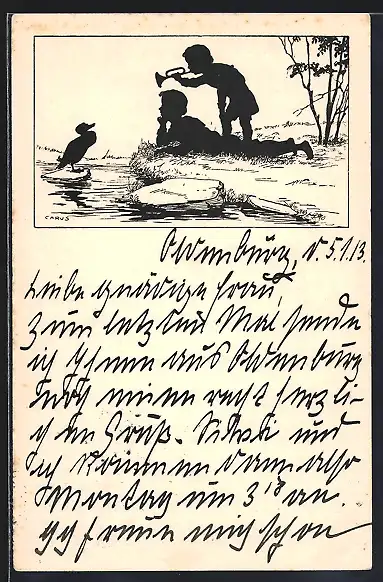 CARUS
Oldenburg, d. 5.9.13.
Liebe gnädige Frau,
Zum letzten Mal sende
ich Ihnen aus Oldenburg
noch meinen recht herzli-
chen Gruß. und
ich kommen dann also
Montag um 3¹⁸ an.
Ich freue mich schon